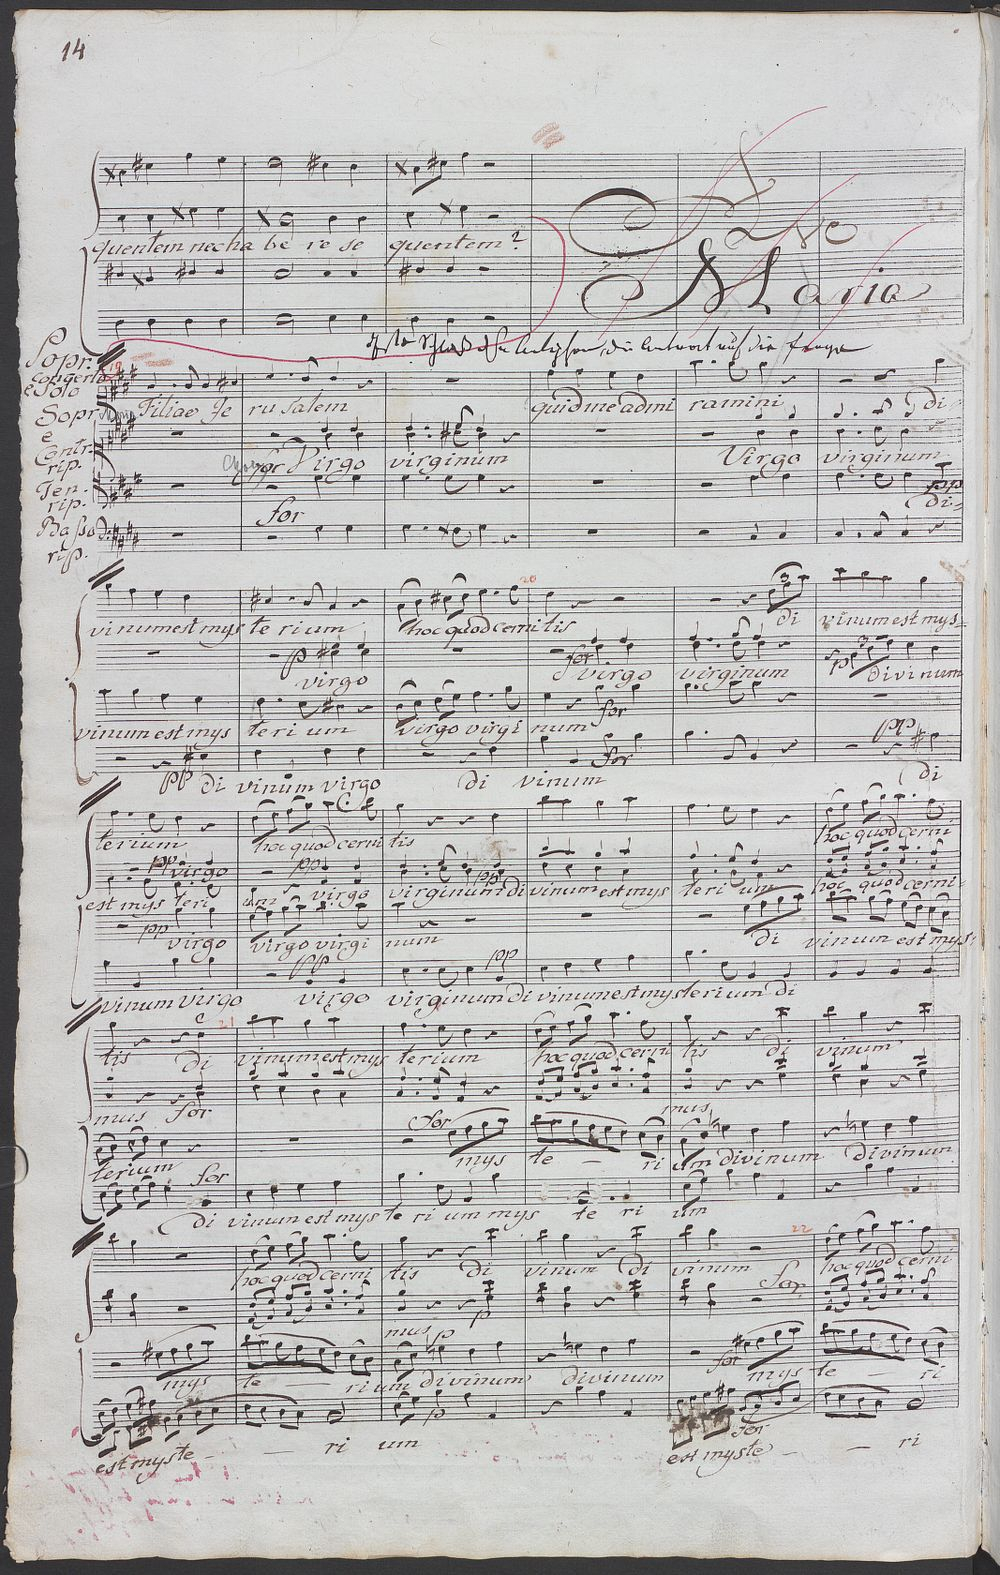 14
quentem nec ha be re se quentem?
Ave
Maria
die Antwort auf die Frage
Sopr.
Concerto
e Solo
19
Filiae Je ru salem quid me admi ramini di
Sopr
e
Contr.
rip.
for Virgo virginum Virgo virginum
Ten.
rip.
pp
di=
for
Basso
rip.
20
vinum est mys te rium hoc quod cerni tis di vinum est mys=
p for p
virgo virgo virginum divinum
vinum est mys teri um virgo virgi num for
pp for pp
di vinum virgo di vinum di
terium hoc quod cerni tis hoc quod cerni
pp virgo pp pp
est mys teri um virgo virginum di vinum est mys teri um hoc quod cerni=
pp virgo virgo virgi num di vinum est mys=
pp pp
vinum virgo virgo virginum di vinum est mysterium di
21
tis di vinum est mys terium hoc quod cerni tis di vinum
mus for for mus
terium mys te — ri um divinum divinum
for
di vinum est mys te ri um mys te ri um
22
hoc quod cerni tis di vinum di vinum hoc quod cerni
for
mus p p
mys te rium divinum divinum for mys te — ri
p for
est myste — — ri um est myste — — ri